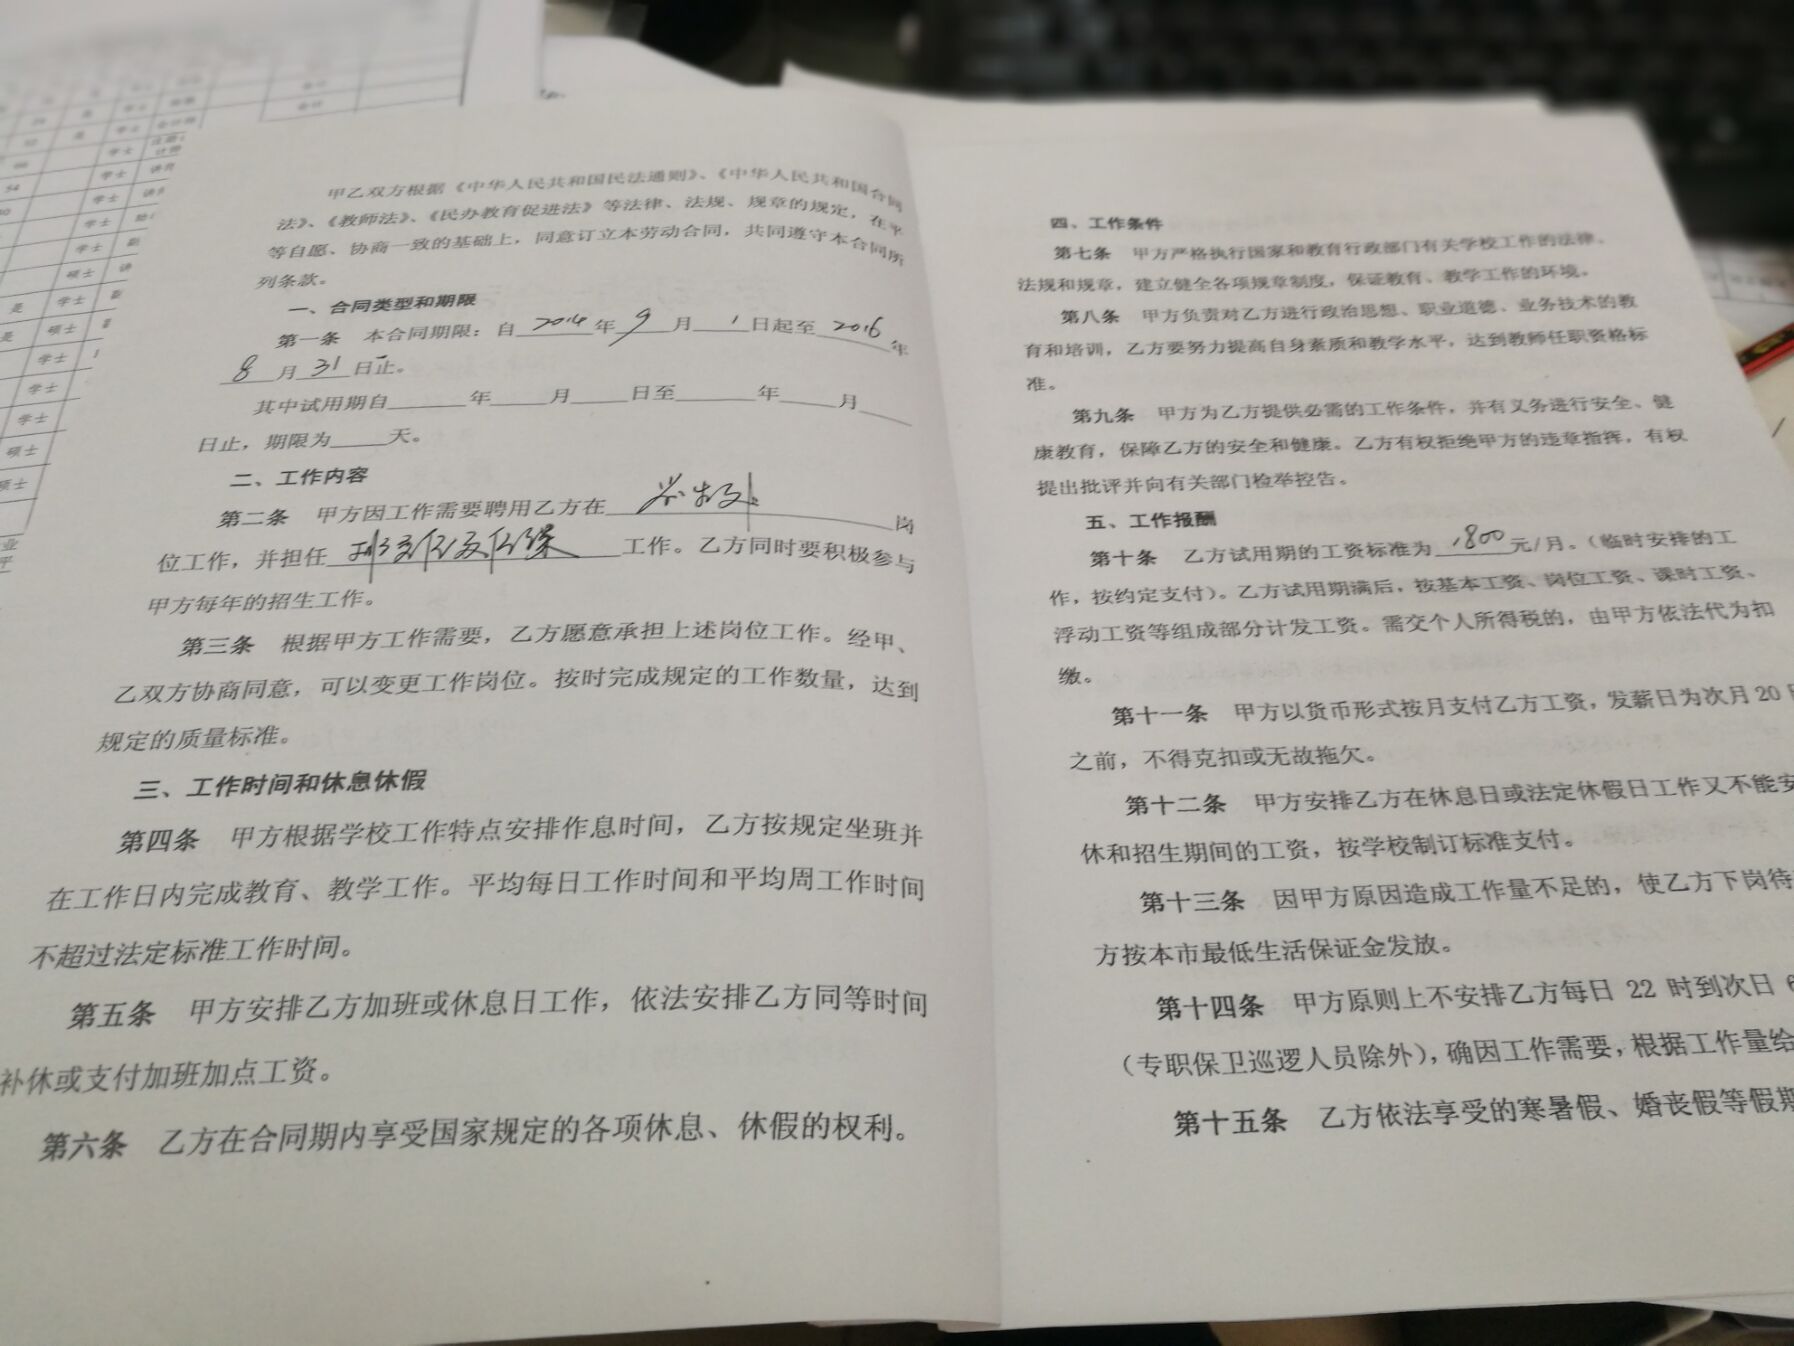 甲乙双方根据《中华人民共和国民法通则》、《中华人民共和国合同
法》、《教师法》、《民办教育促进法》等法律、法规、规章的规定，在平
等自愿、协商一致的基础上，同意订立本劳动合同，共同遵守本合同所
列条款。
一、合同类型和期限
第一条 本合同期限：自 2014 年 9 月 1 日起至 2016 年
8 月 31 日止。
其中试用期自 年 月 日至 年 月
日止，期限为 天。
二、工作内容
第二条 甲方因工作需要聘用乙方在 岗
位工作，并担任 工作。乙方同时要积极参与
甲方每年的招生工作。
第三条 根据甲方工作需要，乙方愿意承担上述岗位工作。经甲、
乙双方协商同意，可以变更工作岗位。按时完成规定的工作数量，达到
规定的质量标准。
三、工作时间和休息休假
第四条 甲方根据学校工作特点安排作息时间，乙方按规定坐班并
在工作日内完成教育、教学工作。平均每日工作时间和平均周工作时间
不超过法定标准工作时间。
第五条 甲方安排乙方加班或休息日工作，依法安排乙方同等时间
补休或支付加班加点工资。
第六条 乙方在合同期内享受国家规定的各项休息、休假的权利。
四、工作条件
第七条 甲方严格执行国家和教育行政部门有关学校工作的法律、
法规和规章，建立健全各项规章制度，保证教育、教学工作的环境。
第八条 甲方负责对乙方进行政治思想、职业道德、业务技术的教
育和培训，乙方要努力提高自身素质和教学水平，达到教师任职资格标
准。
第九条 甲方为乙方提供必需的工作条件，并有义务进行安全、健
康教育，保障乙方的安全和健康。乙方有权拒绝甲方的违章指挥，有权
提出批评并向有关部门检举控告。
五、工作报酬
第十条 乙方试用期的工资标准为 1800 元/月。（临时安排的工
作，按约定支付）。乙方试用期满后，按基本工资、岗位工资、课时工资、
浮动工资等组成部分计发工资。需交个人所得税的，由甲方依法代为扣
缴。
第十一条 甲方以货币形式按月支付乙方工资，发薪日为次月 20 日
之前，不得克扣或无故拖欠。
第十二条 甲方安排乙方在休息日或法定休假日工作又不能安
休和招生期间的工资，按学校制订标准支付。
第十三条 因甲方原因造成工作量不足的，使乙方下岗待
方按本市最低生活保证金发放。
第十四条 甲方原则上不安排乙方每日 22 时到次日 6
（专职保卫巡逻人员除外），确因工作需要，根据工作量给
第十五条 乙方依法享受的寒暑假、婚丧假等假期